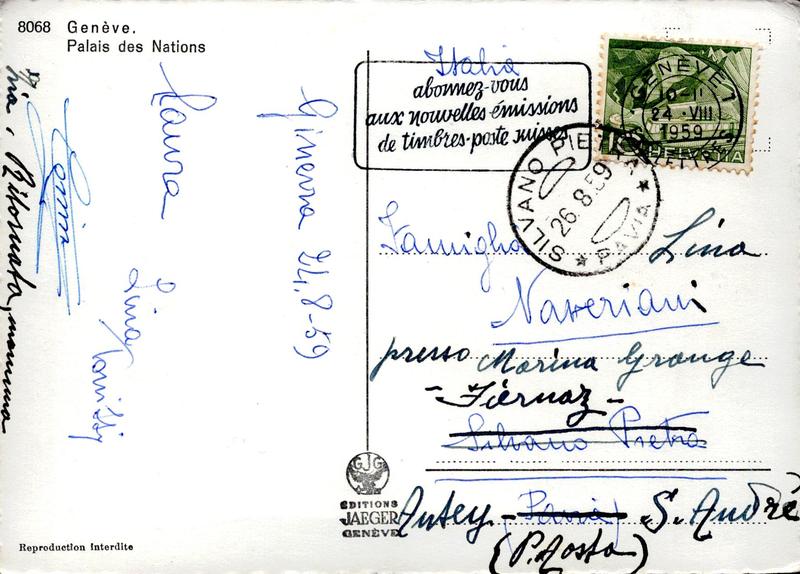 8068 Genève.
Palais des Nations
Laura
Lina
Ginevra 24.8-59
Via. Riformata, mamma
EDITIONS
JAEGER
GENÈVE
Reproduction interdite
Italia
abonnez-vous
aux nouvelles émissions
de timbres-poste suisses
GENÈVE 1
24.VIII
1959
HELVETIA
SILVANO PIETRA
26.8.59
PAVIA
Famiglia Lina
Naveriani
presso Marina Grange
- Fiernaz -
Silvano Pietra
Antey - Pavia S. André
(P. Aosta)